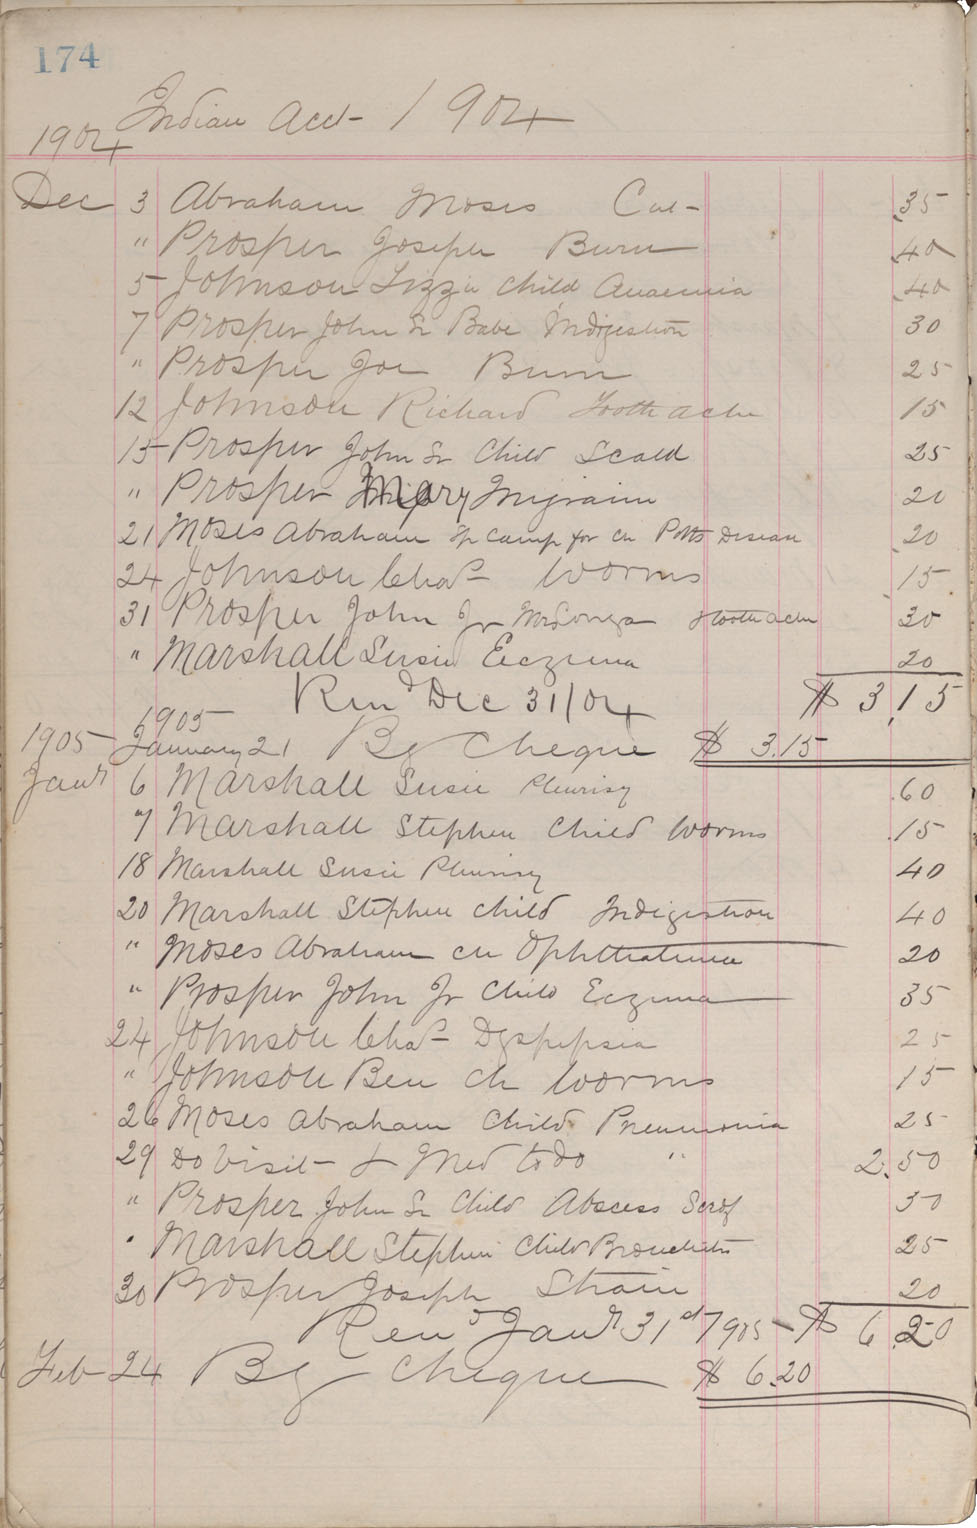 174
Indian Acct - 1904
1904
Dec 3 Abraham Moses Cut - .35
" Prosper Joseph Burn .40
5 Johnson Lizzie child Anaemia .40
7 Prosper John Sr Babe Indigestion 30
" Prosper Joe Burn 25
12 Johnson Richard Tooth ache 15
15 Prosper John Sr Child Scald 25
" Prosper Mary Migraine 20
21 Moses Abraham camp for ch Potts Disease .20
24 Johnson Chas Worms .15
31 Prosper John Jr toothache 30
" Marshall Susie Eczema 20
Rend Dec 31/04 $ 3.15
1905
1905 January 21 By Cheque $ 3.15
Jany 6 Marshall Susie Pleurisy .60
7 Marshall Stephen Child Worms .15
18 Marshall Susie Pleurisy 40
20 Marshall Stephen child Indigestion 40
" Moses Abraham ch Ophthalmia 20
" Prosper John Jr Child Eczema 35
24 Johnson Chas Dyspepsia 25
" Johnson Ben ch Worms 15
26 Moses Abraham Child Pneumonia 25
29 Do Visit - & Med to do " 2.50
" Prosper John Sr Child Abscess Scrof 30
" Marshall Stephen Child Bronchitis 25
30 Prosper Joseph Strain 20
Rend Jany 31st 1905 - $ 6.20
Feb 24 By Cheque $ 6.20